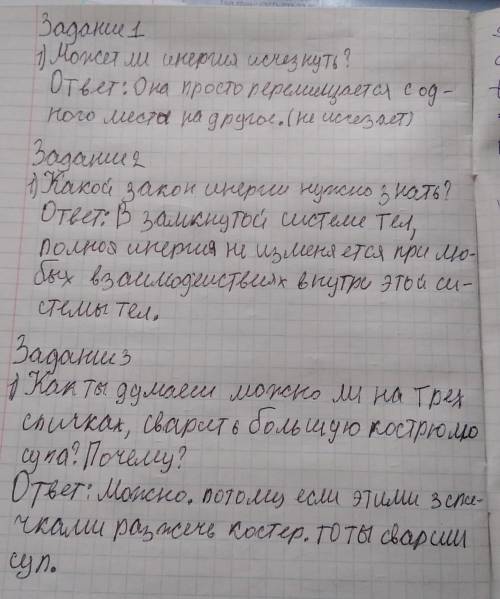 Задание 1
1) Может ли инергия исчезнуть?
Ответ: Она просто перемещается с од-
ного места на другое. (не исчезает)
Задание 2
1) Какой закон инергии нужно знать?
Ответ: В замкнутой системе тел,
полноя инергия не изменяется при лю-
бых взаимодействиях внутри этой си-
стемы тел.
Задание 3
1) Как ты думаеш можно ли на трех
спичках, сварить большую кострюлю
супа? Почему?
Ответ: Можно. потому если этими 3 спи-
чками разжечь костер. то ты сварим
суп.